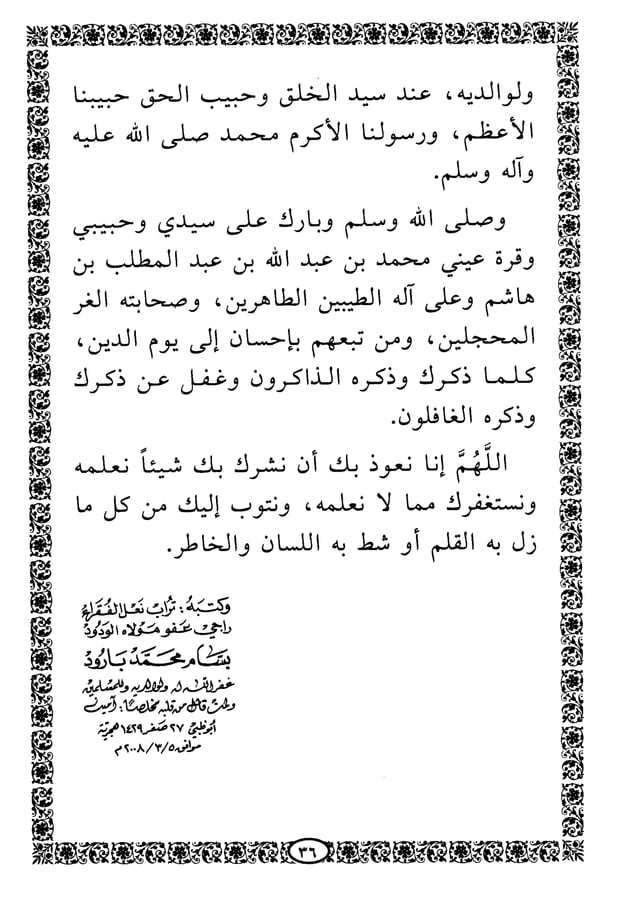 ولوالديه، عند سيد الخلق وحبيب الحق حبيبنا
الأعظم، ورسولنا الأكرم محمد صلى الله عليه
وآله وسلم.
وصلى الله وسلم وبارك على سيدي وحبيبي
وقرة عيني محمد بن عبد الله بن عبد المطلب بن
هاشم وعلى آله الطيبين الطاهرين، وصحابته الغر
المحجلين، ومن تبعهم بإحسان إلى يوم الدين،
كلما ذكرك وذكره الذاكرون وغفل عن ذكرك
وذكره الغافلون.
اللَّهُمَّ إنا نعوذ بك أن نشرك بك شيئاً نعلمه
ونستغفرك مما لا نعلمه، ونتوب إليك من كل ما
زل به القلم أو شط به اللسان والخاطر.
وكتبهُ: تراب نعل الفقراء
راجي عفو مولاه الودود
بسام محمد بارود
غفر الله له ولوالديه وللمسلمين
ولمن قال من قلبه مخلصًا: آمين
أبوظبي ٢٧ صفر ١٤٢٩ هجرية
موافق ٢٠٠٨/٣/٥ م
٣٦